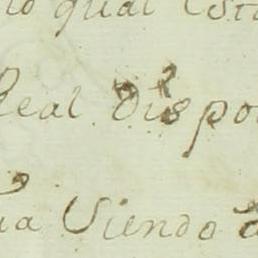 lo qual Esta
Real dispo
ua Siendo a